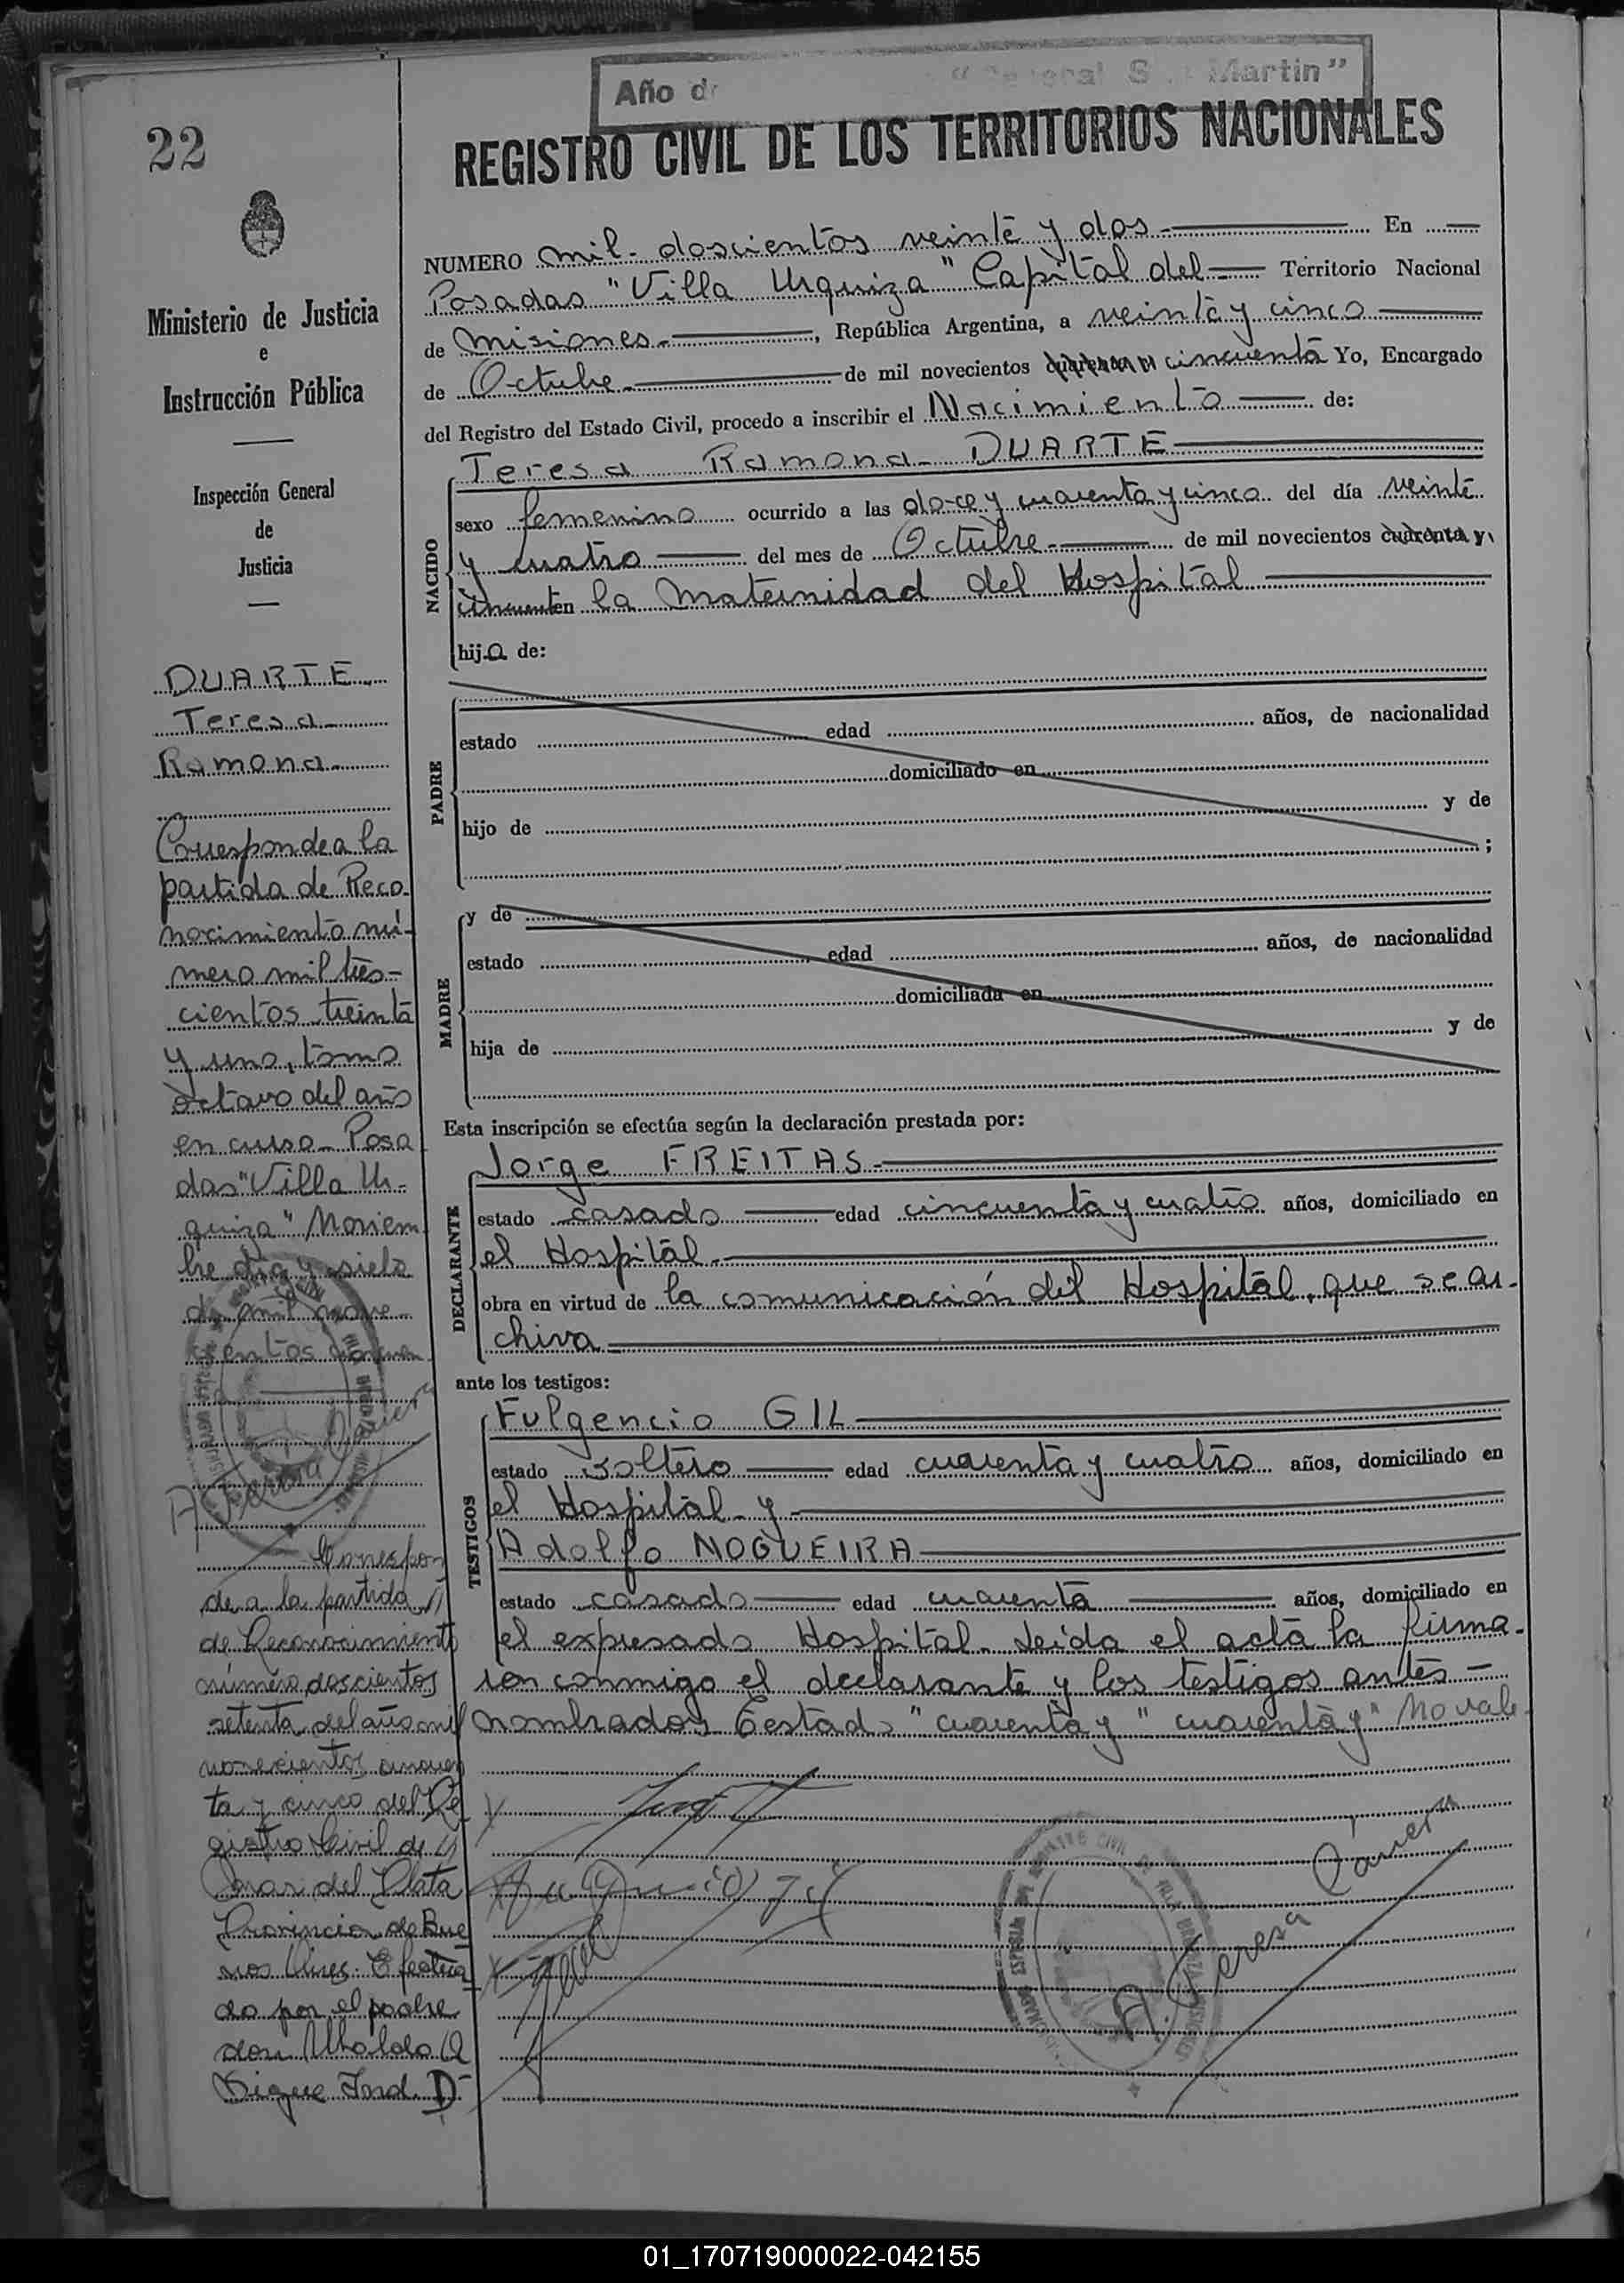 Año d "General S. Martin"
22
REGISTRO CIVIL DE LOS TERRITORIOS NACIONALES
Ministerio de Justicia
e
Instrucción Pública
Inspección General
de
Justicia
NUMERO mil doscientos veinte y dos En
Posadas "Villa Urquiza" Capital del Territorio Nacional
de Misiones, República Argentina, a veinte y cinco
de Octubre de mil novecientos cincuenta Yo, Encargado
del Registro del Estado Civil, procedo a inscribir el Nacimiento de:
Teresa Ramona DUARTE
NACIDO
sexo femenino ocurrido a las doce y cuarenta y cinco del día veinte
y cuatro del mes de Octubre de mil novecientos cuarenta y
cincuenta en la Maternidad del Hospital
hija de:
PADRE
estado edad años, de nacionalidad
domiciliado en
hijo de y de
;
MADRE
y de
estado edad años, de nacionalidad
domiciliada en
hija de y de
Esta inscripción se efectúa según la declaración prestada por:
DECLARANTE
Jorge FREITAS
estado casado edad cincuenta y cuatro años, domiciliado en
el Hospital
obra en virtud de la comunicación del Hospital, que se ar-
chiva
ante los testigos:
TESTIGOS
Fulgencio GIL
estado soltero edad cuarenta y cuatro años, domiciliado en
el Hospital y
Adolfo NOGUEIRA
estado casado edad cuarenta años, domiciliado en
el expresado Hospital. Leída el acta la firma-
ron conmigo el declarante y los testigos antes
nombrados Testado "cuarenta y" cuarenta y" No vale.
DUARTE
Teresa
Ramona
Corresponde a la
partida de Reco-
nocimiento nú-
mero mil tres-
cientos treinta
y uno, tomo
octavo del año
en curso. Posa
das "Villa Ur-
quiza" Noviem
bre diez y siete
de mil nove-
cientos cincuen
Correspon
de a la partida
de Reconocimiento
número doscientos
setenta del año mil
novecientos cincuen
ta y cinco del Re
gistro Civil de
Mar del Plata
Provincia de Bue
nos Aires. Efectua
do por el padre
don Ubaldo
Sigue Ind. D
A. Teresa
01_170719000022-042155